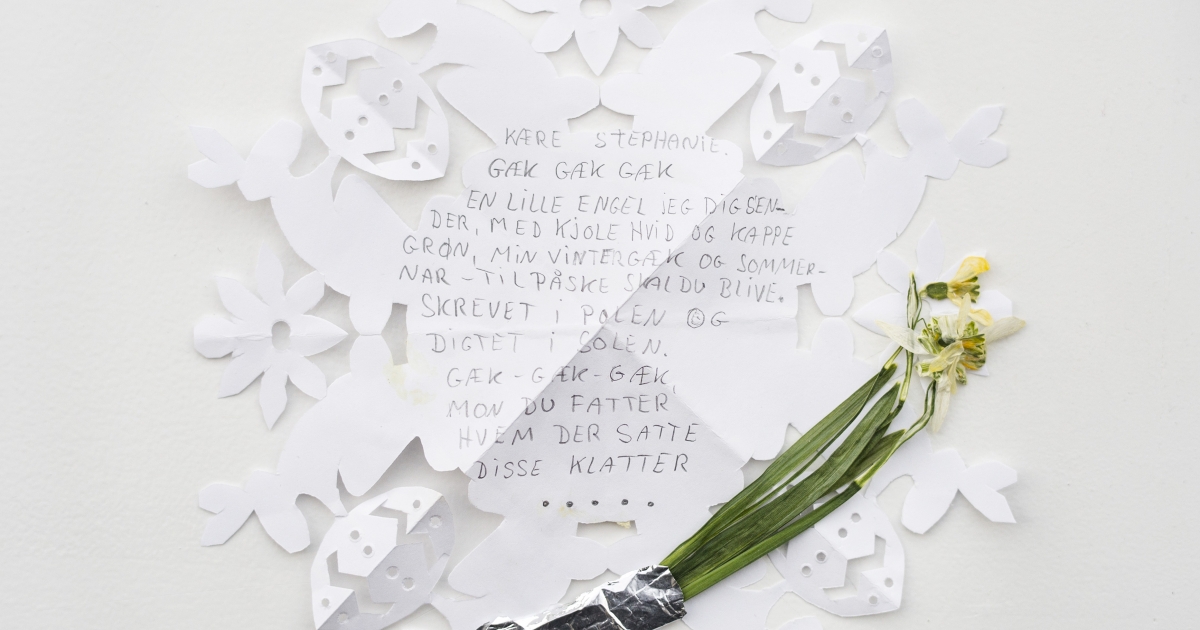 KÆRE STEPHANIE.
GÆK GÆK GÆK
EN LILLE ENGEL JEG DIG SEN-
DER, MED KJOLE HVID OG KAPPE
GRØN, MIN VINTERGÆK OG SOMMER-
NAR - TIL PÅSKE SKAL DU BLIVE.
SKREVET i POLEN OG
DIGTET i SOLEN.
GÆK - GÆK - GÆK,
MON DU FATTER
HVEM DER SATTE
DISSE KLATTER
. . . . .